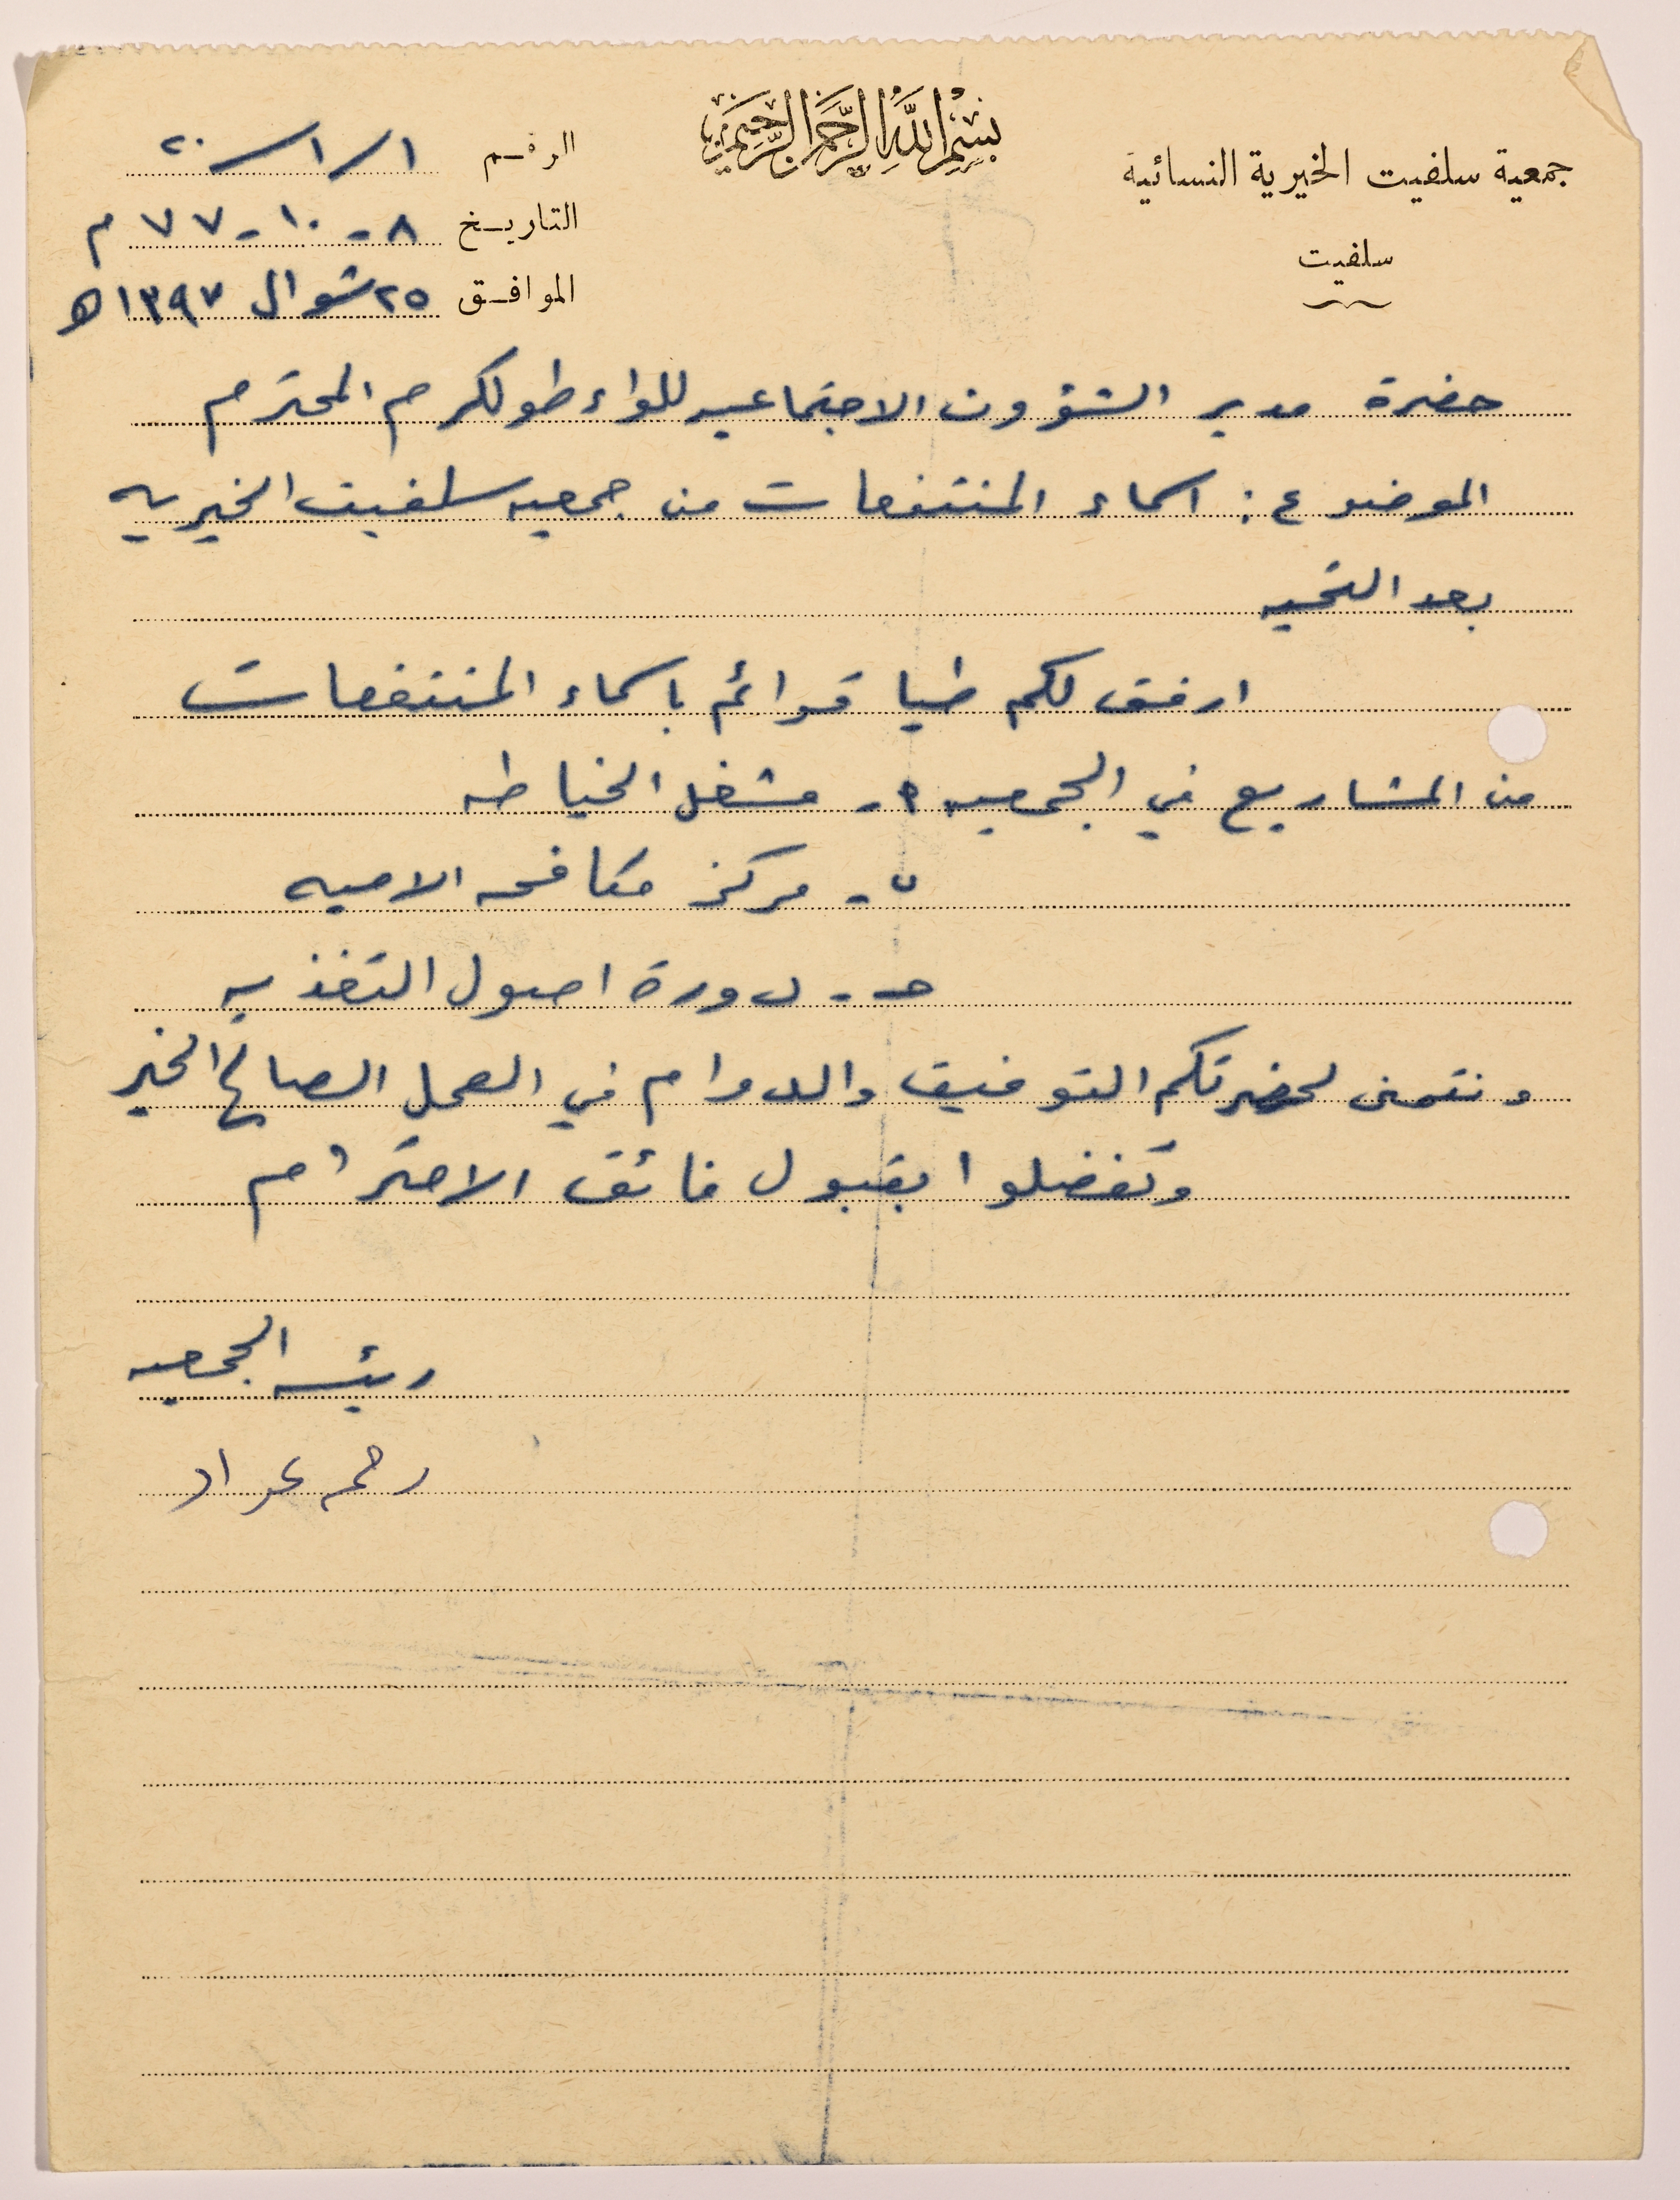 بسم الله الرحمن الرحيم
جمعية سلفيت الخيرية النسائية
سلفيت
الرقم ١/١/٢٠
التاريخ ٨-١٠-٧٧ م
الموافق ٢٥ شوال ١٣٩٧ ه
حضرة مدير الشؤون الاجتماعيه للواء طولكرم المحترم
الموضوع : اسماء المنتفعات من جمعيه سلفيت الخيريه
بعد التحيه
ارفق لكم طيا قوائم باسماء المنتفعات
من المشاريع في الجمعيه ١- مشغل الخياطه
ب- مركز مكافحه الاميه
حـ - دورة اصول التغذيه
ونتمنى لحضرتكم التوفيق والدوام في العمل الصالح الخير
وتفضلوا بقبول فائق الاحترام
رئيسه الجمعيه